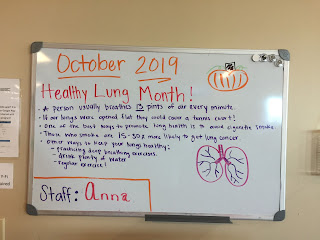 October 2019
Healthy Lung Month!
- A person usually breathes 13 pints of air every minute.
- If our lungs were opened flat they could cover a tennis court!
- One of the best ways to promote lung health is to avoid cigarette smoke.
- Those who smoke are 15-30x more likely to get lung cancer
- Other ways to keep your lungs healthy:
- practicing deep breathing exercises.
- drink plenty of water
- regular exercise!
Staff: Anna